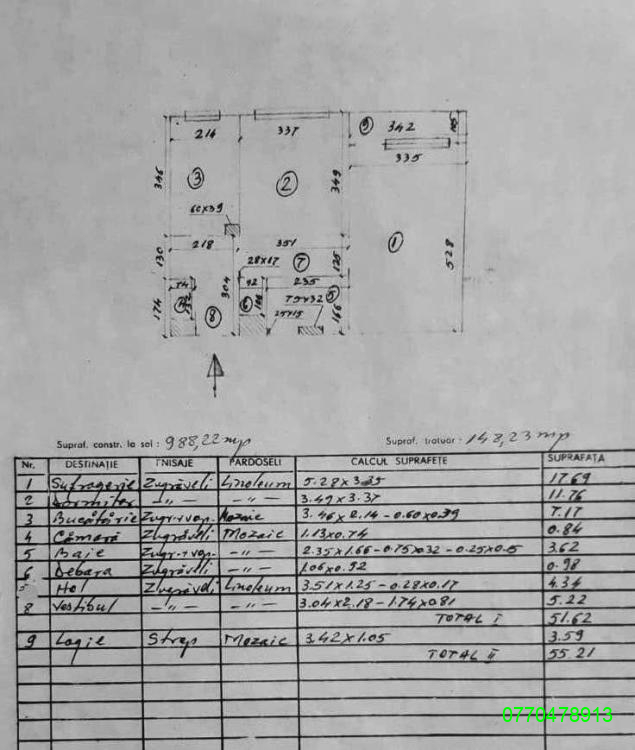 9 342 105
214 337
335
346 3 2 349
60x39 1 528
218 351
130 28x17 7 125
74 304 92 235
174 8 6 75x32 5 166
25x15
Supraf. constr. la sol : 988,22 mp Supraf. trotuar : 148,23 mp
Nr. DESTINAȚIE FINISAJE PARDOSELI CALCUL SUPRAFEȚE SUPRAFAȚA
1 Sufragerie Zugrăveli Linoleum 5.28x3.35 17.69
2 Dormitor -"- -"- 3.49x3.37 11.76
3 Bucătărie Zugr.+vop. Mozaic 3.46x2.14-0.60x0.39 7.17
4 Cămară Zugrăveli Mozaic 1.13x0.74 0.84
5 Baie Zugr.+vop. -"- 2.35x1.66-0.75x032-0.25x0.15 3.62
6 Debara Zugrăveli -"- 1.06x0.92 0.98
Hol Zugrăveli Linoleum 3.51x1.25-0.28x0.17 4.34
8 Vestibul -"- -"- 3.04x2.18-1.74x081 5.22
TOTAL I 51.62
9 Logie Strop Mozaic 3.42x1.05 3.59
TOTAL II 55.21
0770478913